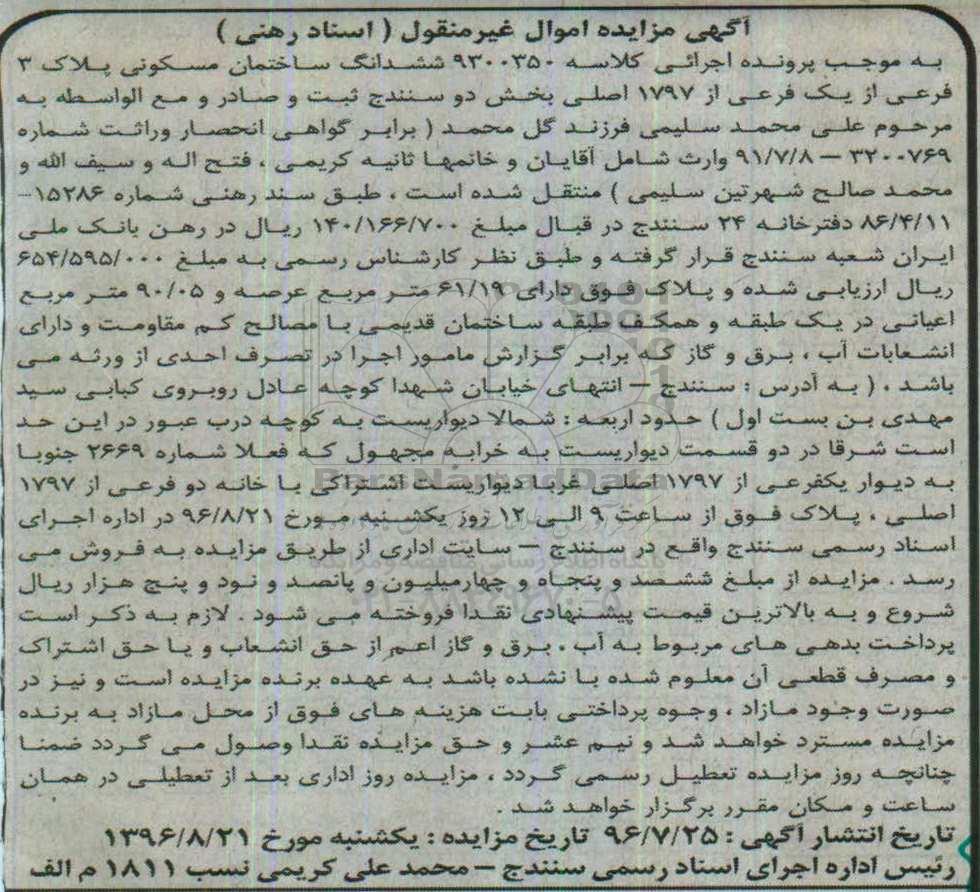 آگهی مزایده اموال غیرمنقول ( اسناد رهنی )
به موجب پرونده اجرائی کلاسه ۹۳۰۰۳۵۰ ششدانگ ساختمان مسکونی پلاک ۳
فرعی از یک فرعی از ۱۷۹۷ اصلی بخش دو سنندج ثبت و صادر و مع الواسطه به
مرحوم علی محمد سلیمی فرزند گل محمد ( برابر گواهی انحصار وراثت شماره
۳۲۰۰۷۶۹ – ۹۱/۷/۸ وارث شامل آقایان و خانمها ثانیه کریمی ، فتح اله و سیف الله و
محمد صالح شهرتین سلیمی ) منتقل شده است ، طبق سند رهنی شماره ۱۵۲۸۶–
۸۶/۴/۱۱ دفترخانه ۲۴ سنندج در قبال مبلغ ۱۴۰/۱۶۶/۷۰۰ ریال در رهن بانک ملی
ایران شعبه سنندج قرار گرفته و طبق نظر کارشناس رسمی به مبلغ ۶۵۴/۵۹۵/۰۰۰
ریال ارزیابی شده و پلاک فوق دارای ۶۱/۱۹ متر مربع عرصه و ۹۰/۰۵ متر مربع
اعیانی در یک طبقه و همکف طبقه ساختمان قدیمی با مصالح کم مقاومت و دارای
انشعابات آب ، برق و گاز که برابر گزارش مامور اجرا در تصرف احدی از ورثه می
باشد . ( به آدرس : سنندج – انتهای خیابان شهدا کوچه عادل روبروی کبابی سید
مهدی بن بست اول ) حدود اربعه : شمالا دیواریست به کوچه درب عبور در این حد
است شرقا در دو قسمت دیواریست به خرابه مجهول که فعلا شماره ۲۶۶۹ جنوبا
به دیوار یکفرعی از ۱۷۹۷ اصلی غربا دیواریست اشتراکی با خانه دو فرعی از ۱۷۹۷
اصلی ، پلاک فوق از ساعت ۹ الی ۱۲ روز یکشنبه مورخ ۹۶/۸/۲۱ در اداره اجرای
اسناد رسمی سنندج واقع در سنندج – سایت اداری از طریق مزایده به فروش می
رسد . مزایده از مبلغ ششصد و پنجاه و چهارمیلیون و پانصد و نود و پنج هزار ریال
شروع و به بالاترین قیمت پیشنهادی نقدا فروخته می شود . لازم به ذکر است
پرداخت بدهی های مربوط به آب ، برق و گاز اعم از حق انشعاب و یا حق اشتراک
و مصرف قطعی آن معلوم شده با نشده باشد به عهده برنده مزایده است و نیز در
صورت وجود مازاد ، وجوه پرداختی بابت هزینه های فوق از محل مازاد به برنده
مزایده مسترد خواهد شد و نیم عشر و حق مزایده نقدا وصول می گردد ضمنا
چنانچه روز مزایده تعطیل رسمی گردد ، مزایده روز اداری بعد از تعطیلی در همان
ساعت و مکان مقرر برگزار خواهد شد .
تاریخ انتشار آگهی : ۹۶/۷/۲۵ تاریخ مزایده : یکشنبه مورخ ۱۳۹۶/۸/۲۱
رئیس اداره اجرای اسناد رسمی سنندج – محمد علی کریمی نسب ۱۸۱۱ م الف
ParsNamadData